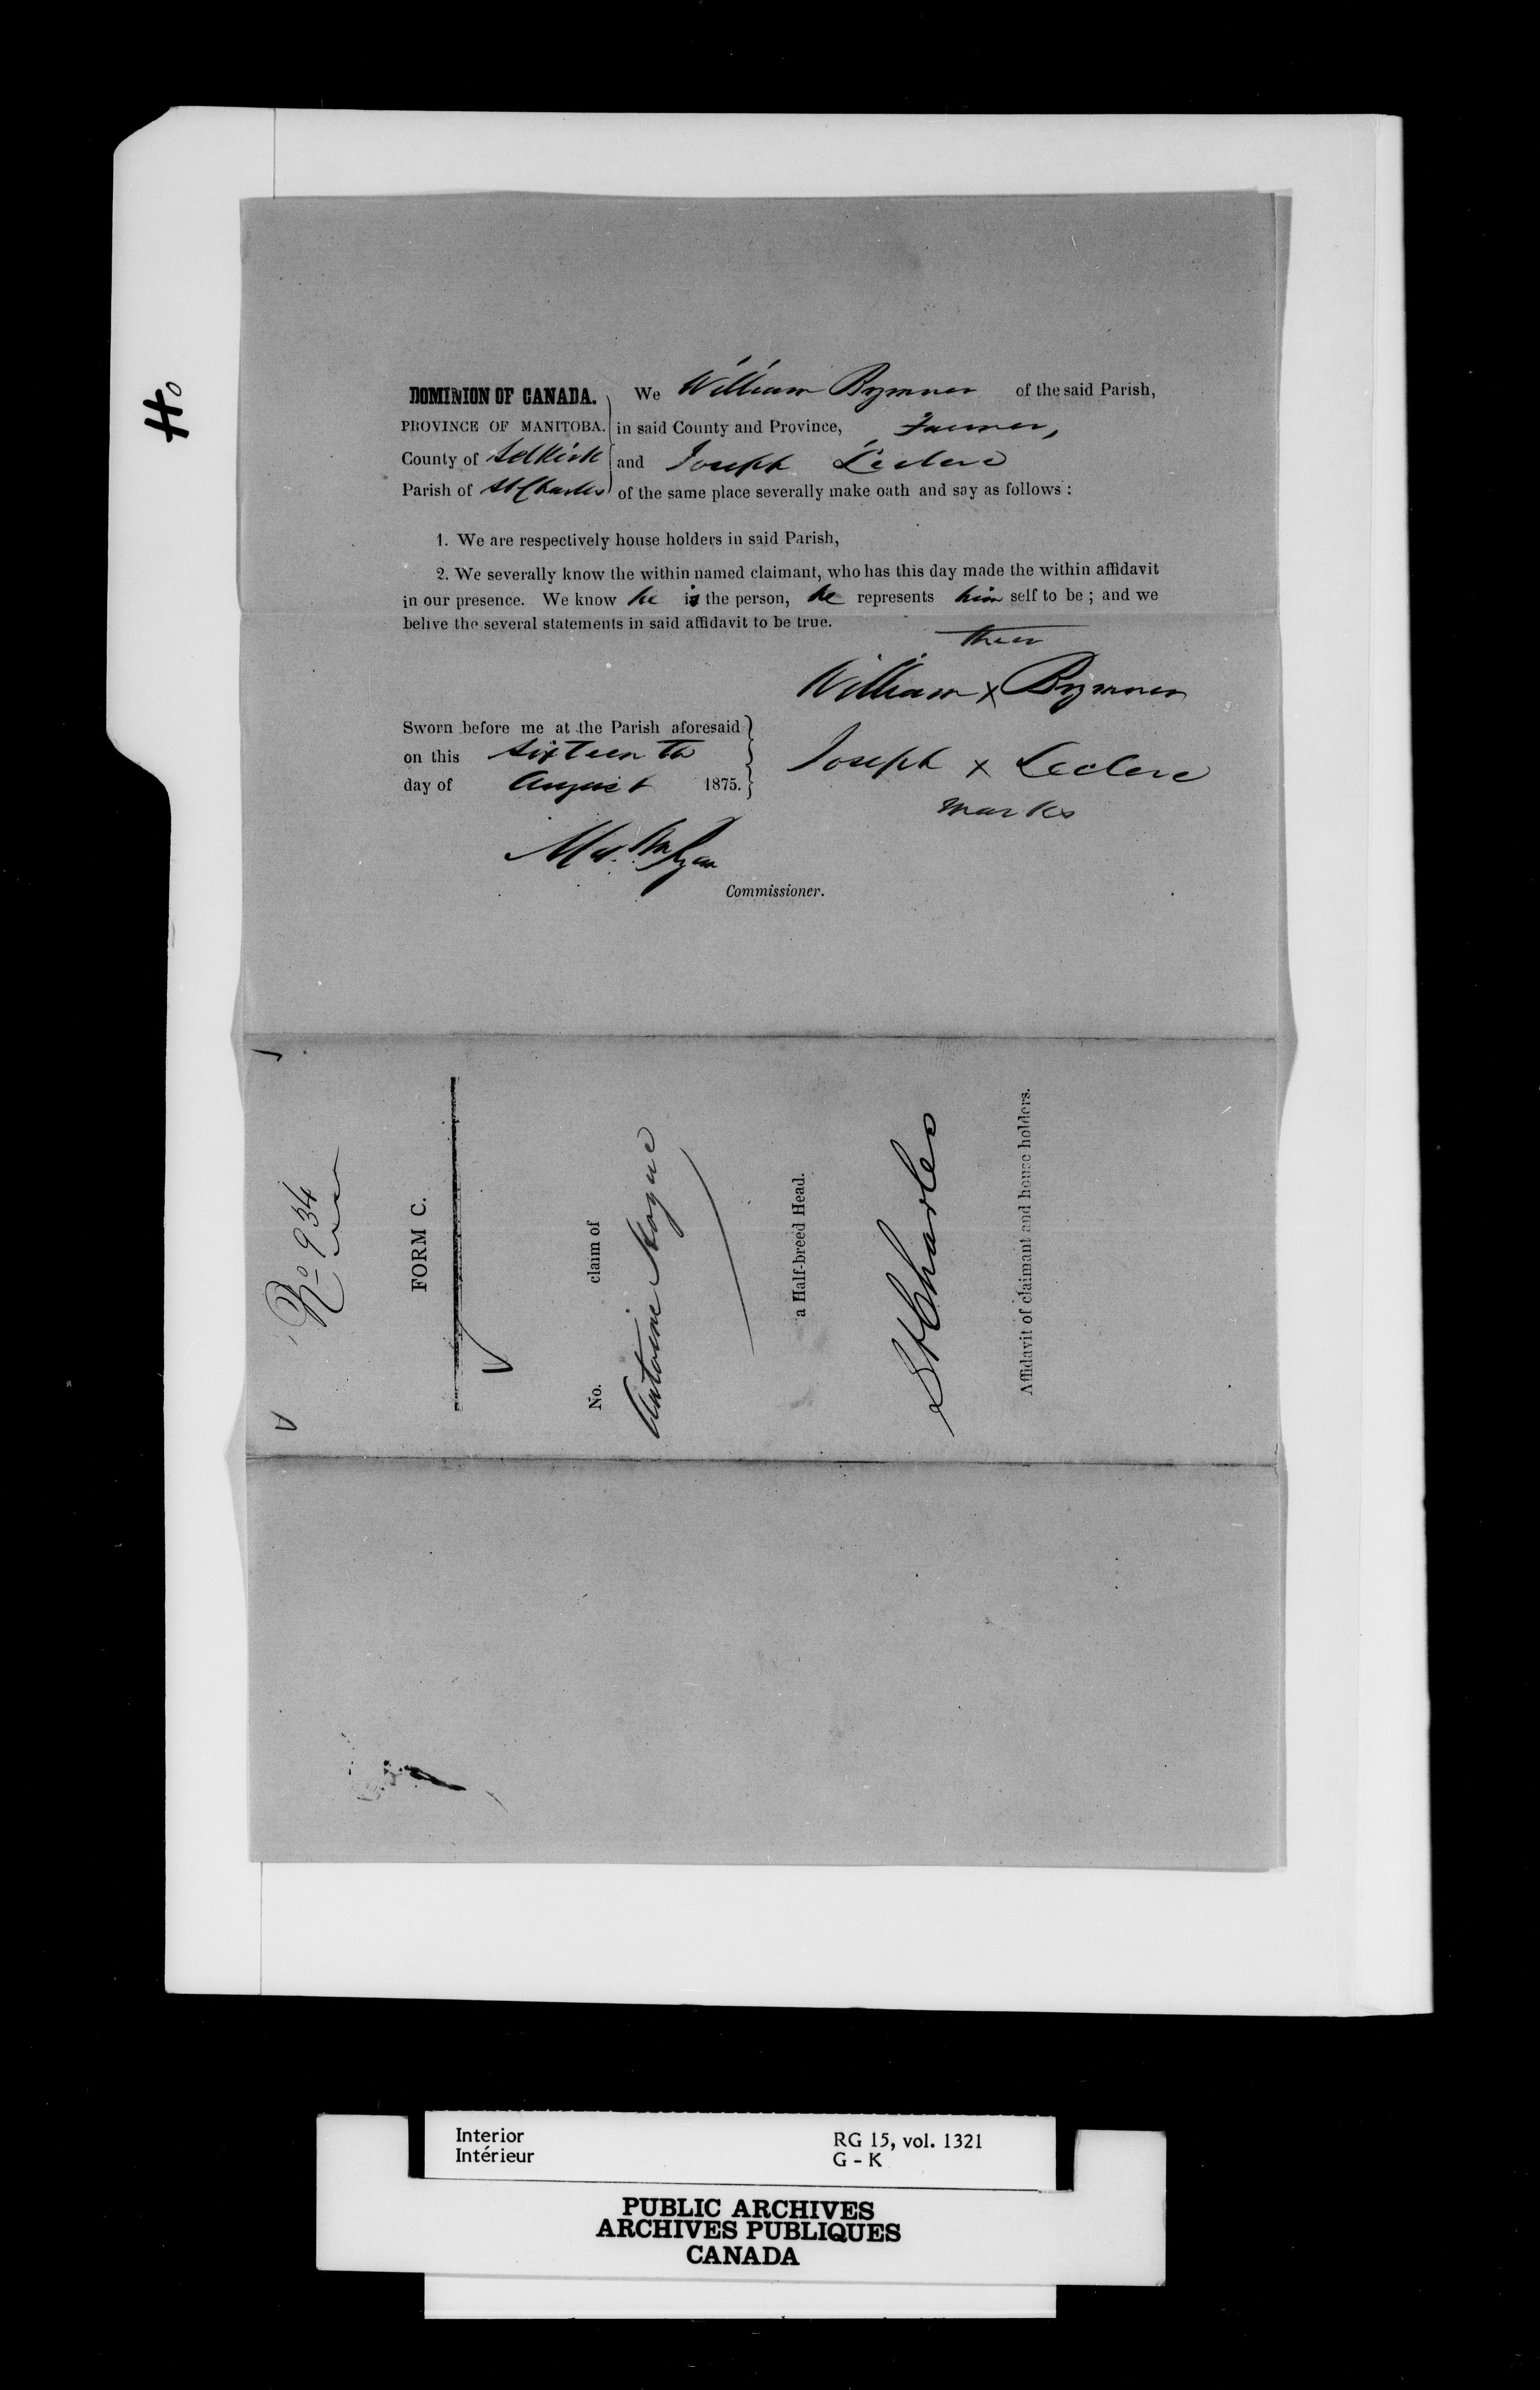 Ho
DOMINION OF CANADA. We William Bymner of the said Parish,
PROVINCE OF MANITOBA. in said County and Province, Farmer,
County of Selkirk and Joseph Leclerc
Parish of St Charles of the same place severally make oath and say as follows :
1. We are respectively house holders in said Parish,
2. We severally know the within named claimant, who has this day made the within affidavit
in our presence. We know he is the person, he represents him self to be ; and we
belive the several statements in said affidavit to be true.
their
William x Bymner
Sworn before me at the Parish aforesaid
on this sixteenth
day of August 1875.
Joseph x Leclerc
marks
Commissioner.
No 934
FORM C.
No. claim of
Antoine Hogue
a Half-breed Head.
St Charles
Affidavit of claimant and house holders.
Interior RG 15, vol. 1321
Intérieur G - K
PUBLIC ARCHIVES
ARCHIVES PUBLIQUES
CANADA